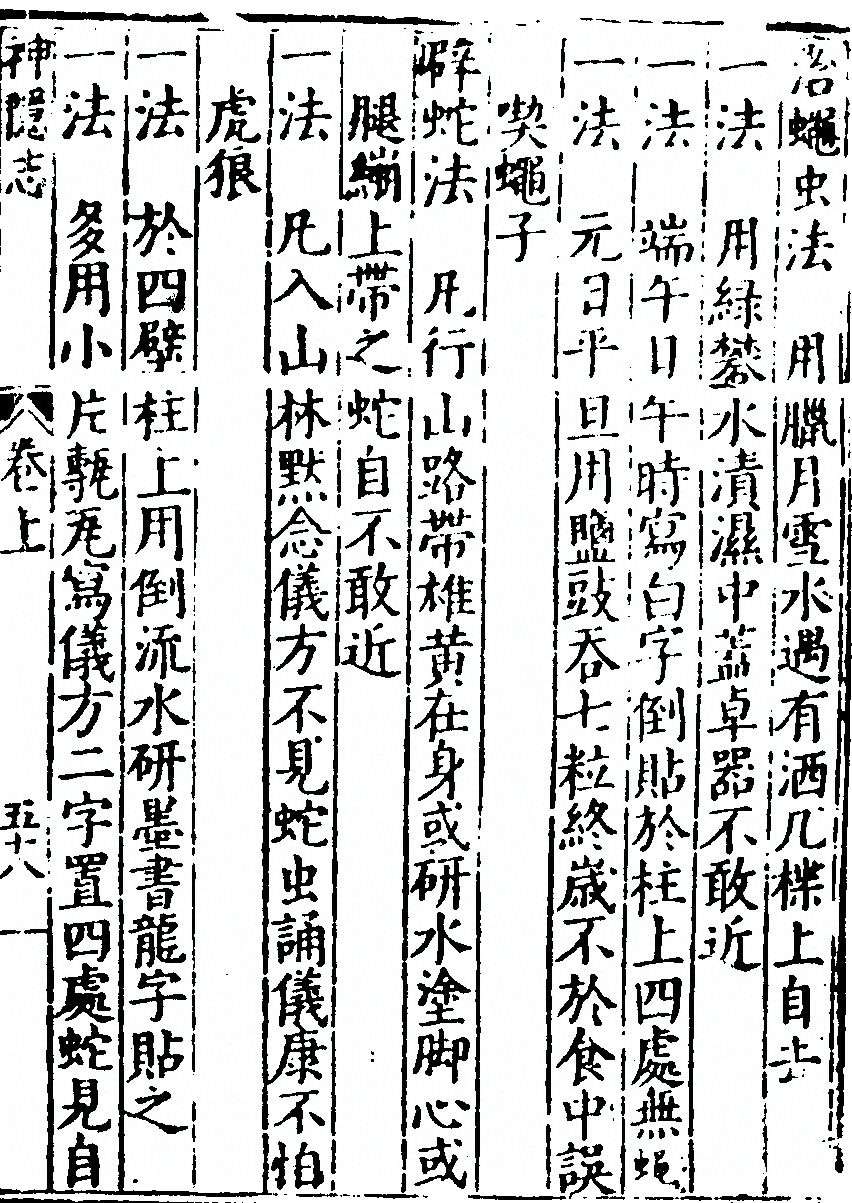 治蠅虫法 用臘月雪水遇有洒几楪上自去
一法 用綠礬水漬濕巾蓋卓器不敢近
一法 端午日午時寫白字倒貼於柱上四處無蝇
一法 元日平旦用鹽豉吞七粒終歲不於食中誤
喫蠅子
辟蛇法 凡行山路帶雄黃在身或研水塗脚心或
腿繃上帶之蛇自不敢近
一法 凡入山林黙念儀方不見蛇虫誦儀康不怕
虎狼
一法 於四壁柱上用倒流水研墨書龍字貼之
一法 多用小片甎瓦寫儀方二字置四處蛇見自
神隱志 卷上 五十八